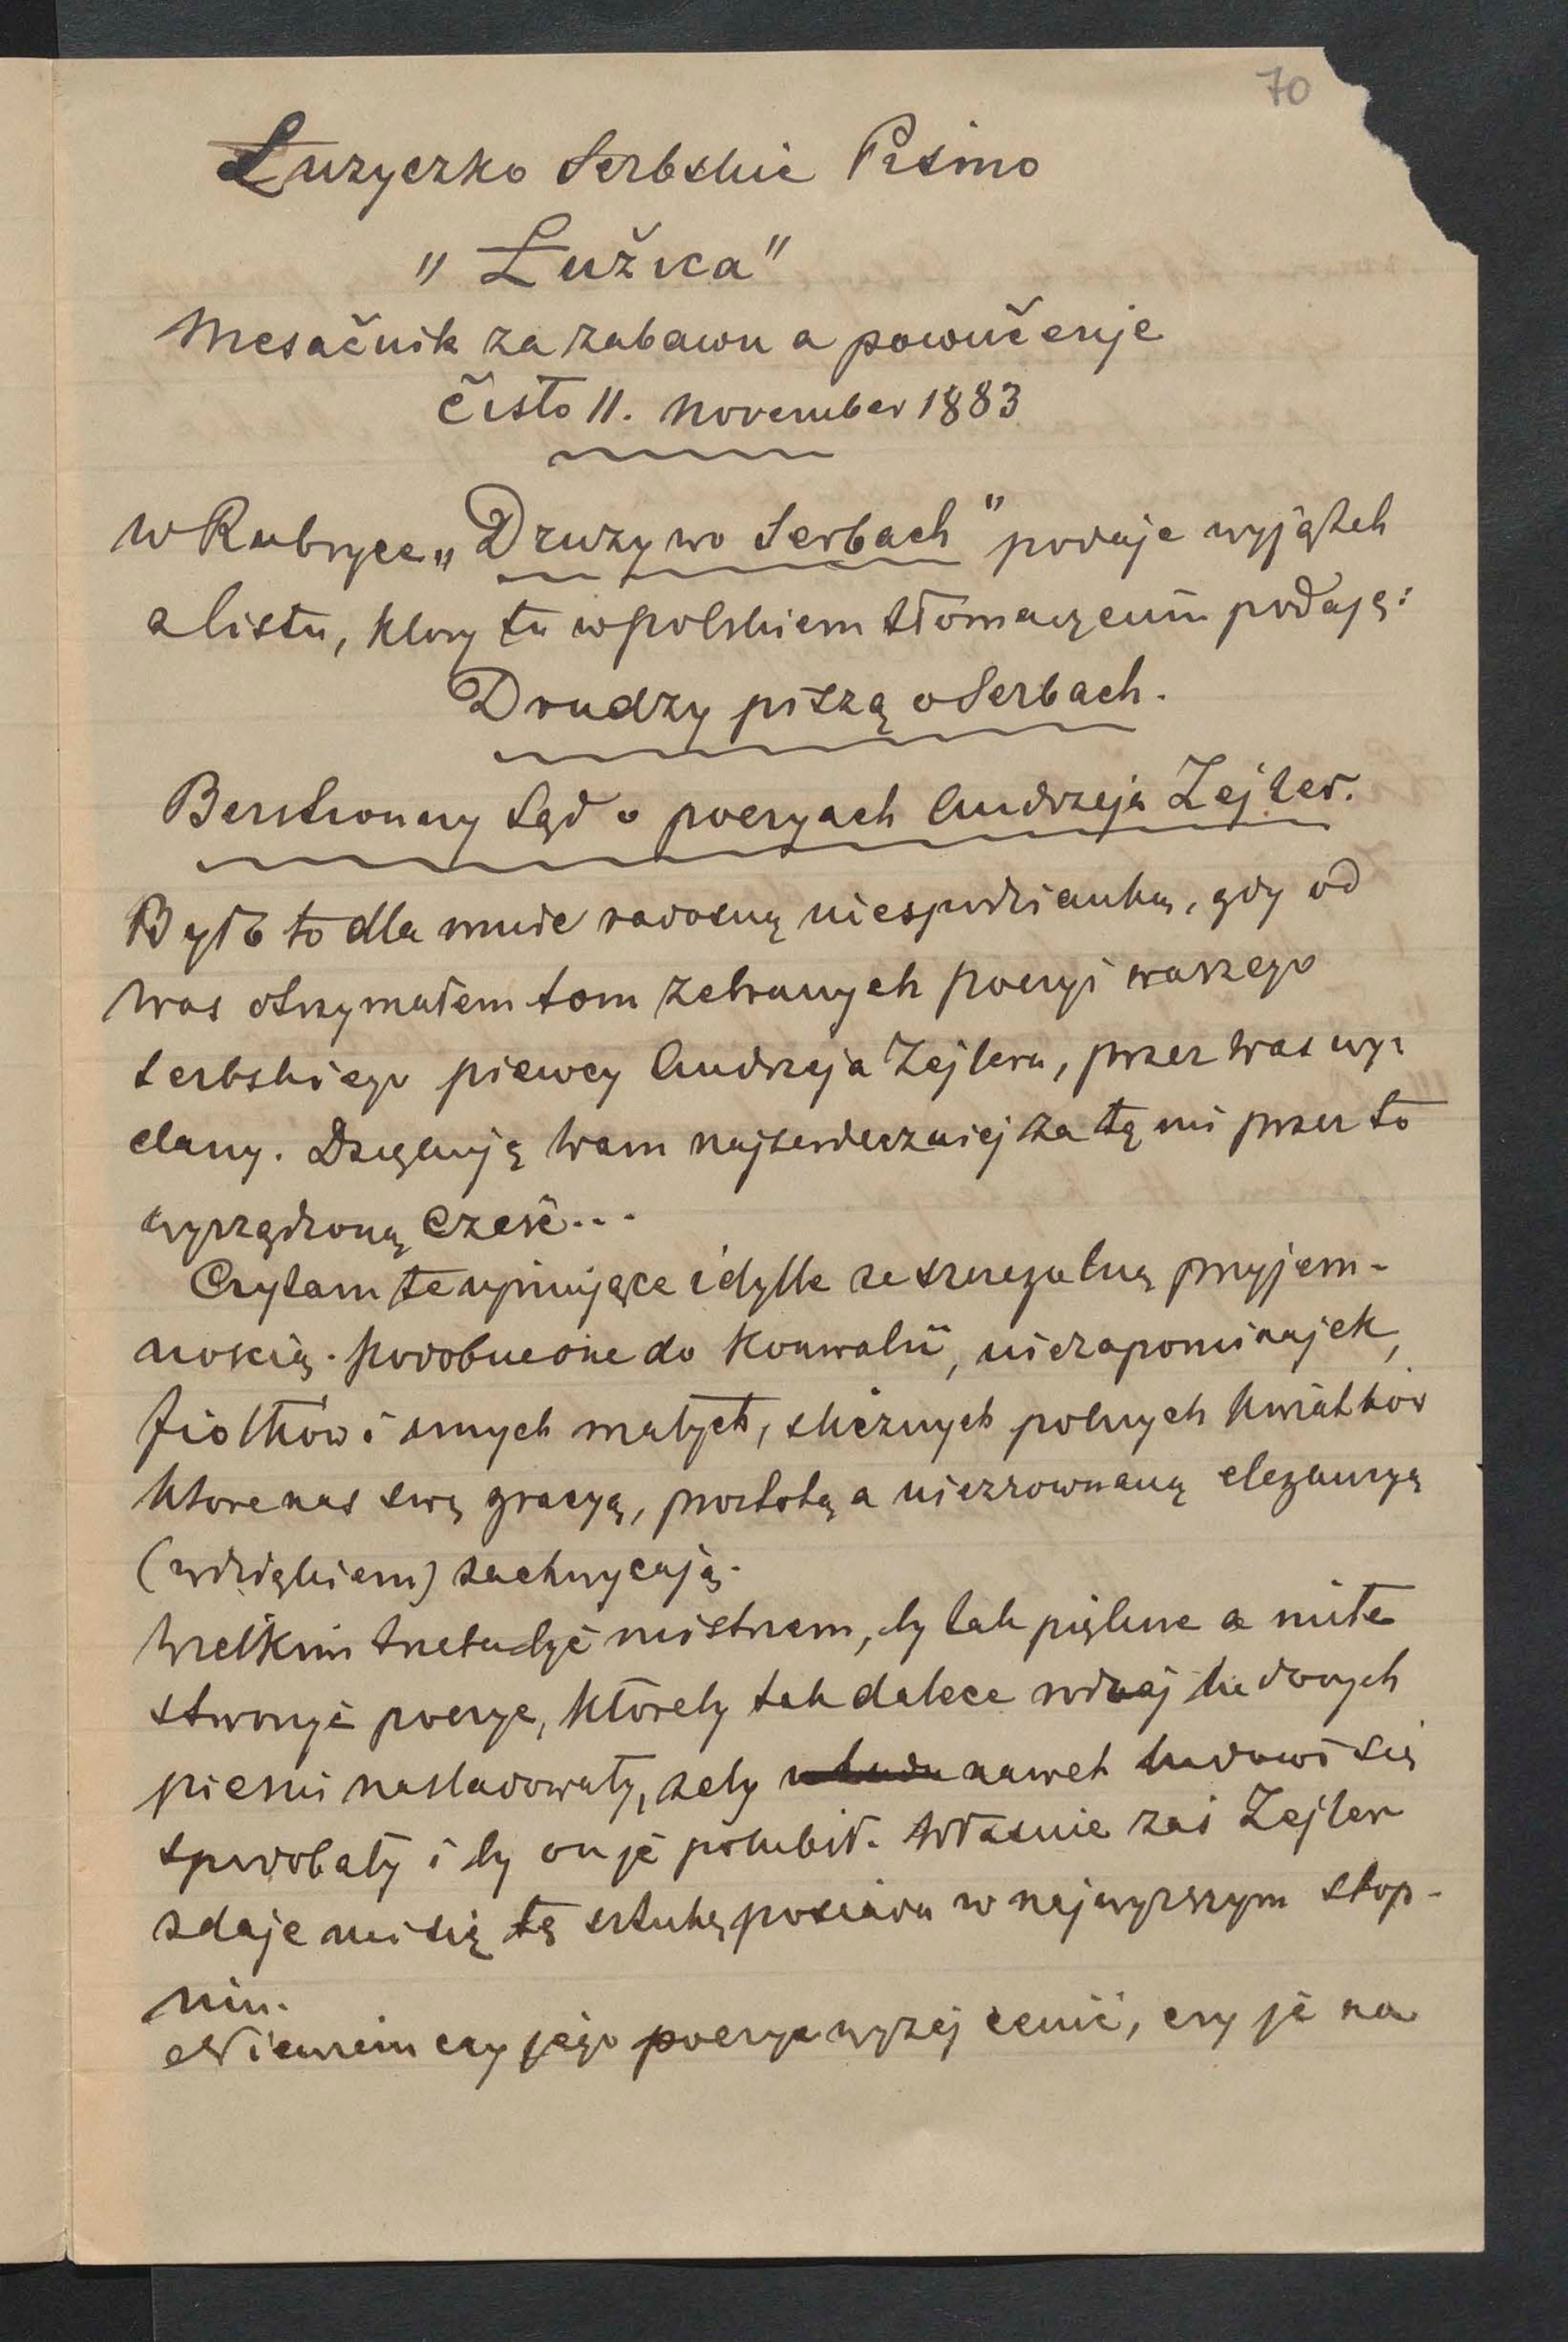 70
Łuzyczko Serbskie Pismo
„Łužica"
Mesačnik za zabawu a powučenje
čisło 11. November 1883
W Rubryce „Druzy wo Serbach" podaje wyjątek
z listu, ktory tu w polskiem tłómaczeniu podaję:
Drudzy piszą o Serbach.
Bezstronny Sąd o poezyach Andrzeja Zejler.
Było to dla mnie radosną niespodzianką, gdy od
Was otrzymałem tom zebranych poezyi waszego
serbskiego piewcy Andrzeja Zejlera, przez was wy-
dany. Dziękuję Wam najserdeczniej za tę mi przez to
wyrządzoną Cześć...
Czytam te ujmujące idylle ze szczegulną przyjem-
nością. Podobne one do Konwalii, niezapominajek,
fiołków i innych małych, slicznych polnych kwiatków
ktore nas swą gracyą, prostotą a niezrownaną elegancyą
(wdziękiem) zachwycają.
Wielkim trzeba być mistrzem, by tak piękne a miłe
stworzyć poezye, któreby tak dalece rodzaj ludowych
piesni nasladowały, zeby nawet ludowi się
spodobały i by on je polubił. Własnie zaś Zejler
zdaje mi się tę sztukę posiada w najwyzszym stop-
niu.
Niewiem czy jego poezye wyzej cenić, czy je na